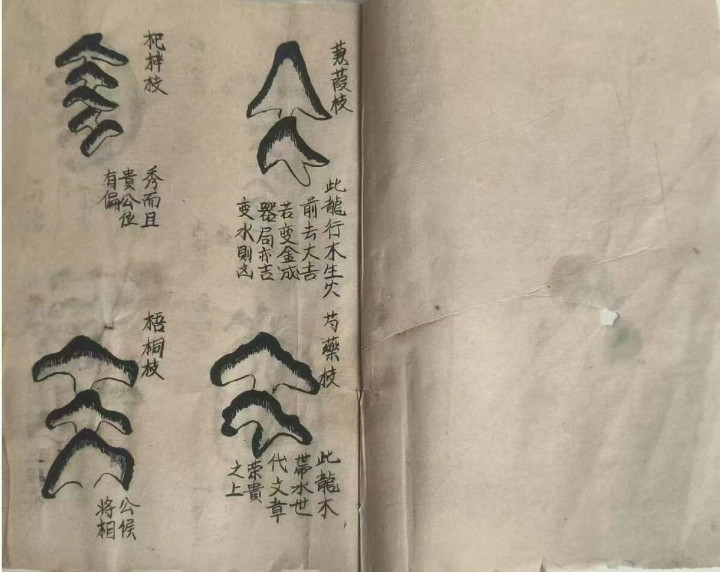 蒹葭枝
此龍行木生火
前去大吉
若变金成
器局亦吉
变水則凶
杞梓枝
秀而且
貴公位
有偏
芍藥枝
此龍木
帶水世
代文章
荣貴
之上
梧桐枝
公侯
将相